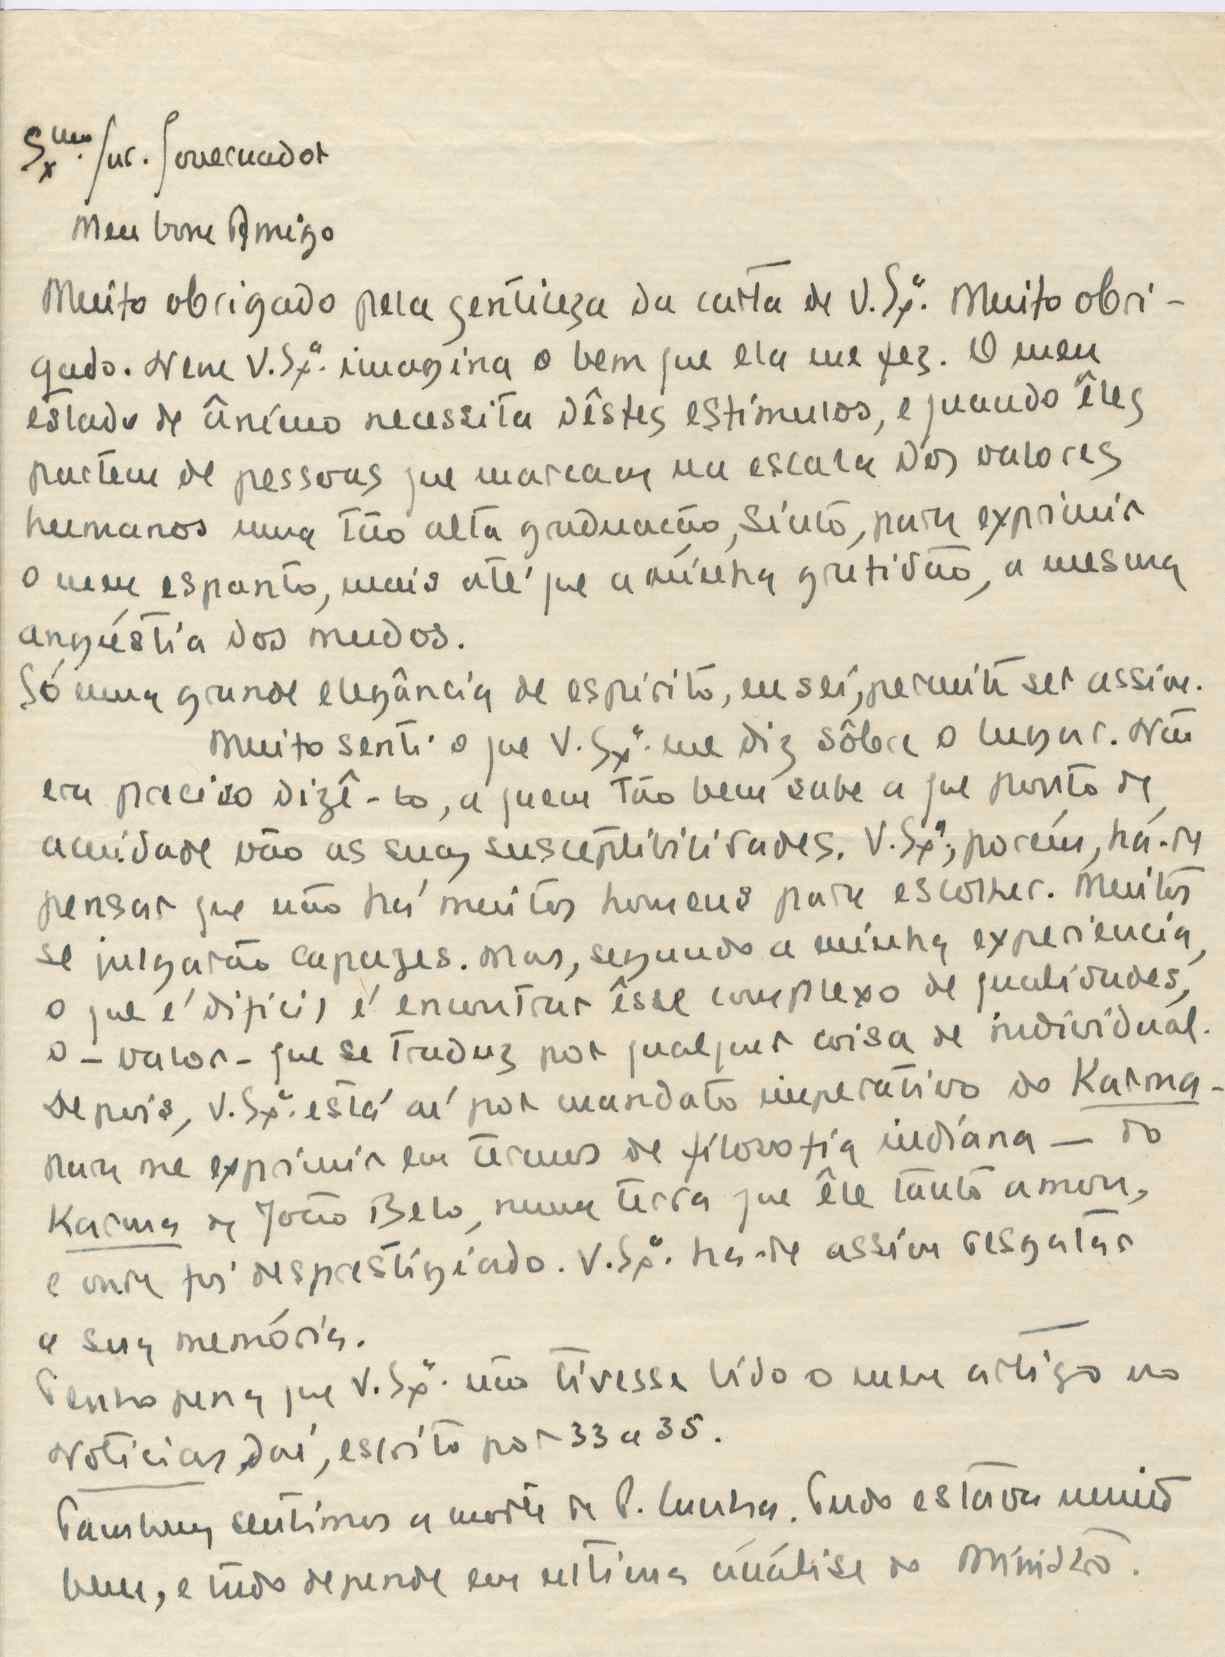 Exmo. Snr. Governador
Meu bom Amigo
Muito obrigado pela gentileza da carta de V. Exª. Muito obri-
gado. Nem V. Exª. imagina o bem que ela me fez. O meu
estado de ânimo necessita dêstes estímulos, e quando êles
partem de pessoas que marcam na escala dos valores
humanos uma tão alta graduação, sinto, para exprimir
o meu espanto, mais até que a minha gratidão, a mesma
angústia dos mudos.
Só uma grande elegância de espírito, eu sei, permite ser assim.
Muito senti o que V. Exª. me diz sôbre o lugar. Não
era preciso dizê-lo, a quem tão bem sabe a que ponto de
acuidade vão as suas susceptibilidades. V. Exª, porém, há-de
pensar que não há muitos homens para escolher. Muitos
se julgarão capazes. Mas, segundo a minha experiencia,
o que é difícil é encontrar êsse complexo de qualidades,
o - valor - que se traduz por qualquer coisa de individual.
Depois, V. Exª. está aí por mandato imperativo do Karma -
para me exprimir em termos de filosofia indiana — do
Karma de João Belo, numa terra que êle tanto amou,
e onde foi desprestigiado. V. Exª. ha-de assim resgatar
a sua memória.
Tenho pena que V. Exª. não tivesse lido o meu artigo no
Noticias, daí, escrito por 33 a 35.
Tambem sentimos a morte de P. Cunha. Tudo estava muito
bem, e tudo depende em ultima análise do Ministro.